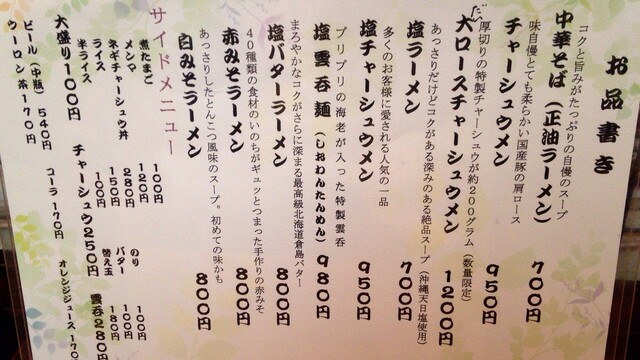 お品書き
コクと旨みがたっぷりの自慢のスープ
中華そば(正油ラーメン) 700円
味自慢とても柔らかい国産豚の肩ロース
チャーシュウメン 950円
厚切りの特製チャーシュウが約200グラム(数量限定)
大ロースチャーシュウメン 1200円
あっさりだけどコクがある深みのある絶品スープ(沖縄天日塩使用)
塩ラーメン 700円
多くのお客様に愛される人気の一品
塩チャーシュウメン 950円
プリプリの海老が入った特製雲呑
塩雲呑麺(しおわんたんめん) 980円
まろやかなコクがさらに深まる最高級北海道倉島バター
塩バターラーメン 800円
40種類の食材のいのちがギュッとつまった手作りの赤みそ
赤みそラーメン 800円
あっさりしたとんこつ風味のスープ。初めての味かも
白みそラーメン 800円
サイドメニュー
煮たまご 100円 のり 100円
メンマ 120円 バター 100円
ネギチャーシュウ丼 280円 替え玉 180円
ライス 150円
半ライス 100円
大盛り100円 チャーシュウ250円 雲呑280円
ビール(中瓶) 540円 コーラ 170円 オレンジジュース 170円
ウーロン茶 170円